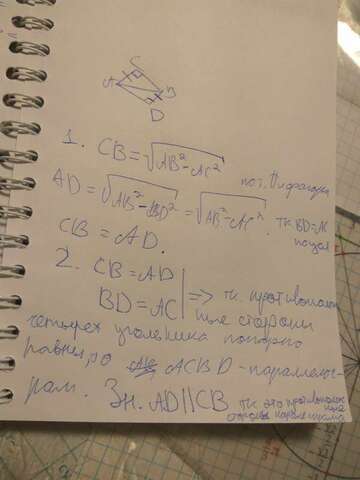 C
A
B
D
1. CB = √AB² - AC²
по т. Пифагора
AD = √AB² - BD² = √AB² - AC². тк BD = AC
по усл
CB = AD.
2. CB = AD
BD = AC | => т.к. противополож
ные стороны
четырех угольника попарно
равны, то ACBD - параллелог-
рам. Зн. AD || CB тк это противополож
ные
стороны параллелограмма